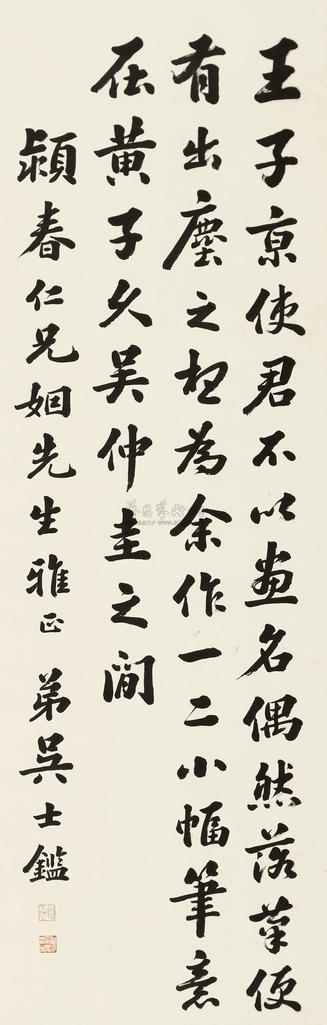 王子京使君不以畫名偶然落筆便
有出塵之想為余作一二小幅筆意
在黃子久吳仲圭之間
潁春仁兄姻先生雅正 弟吳士鑑